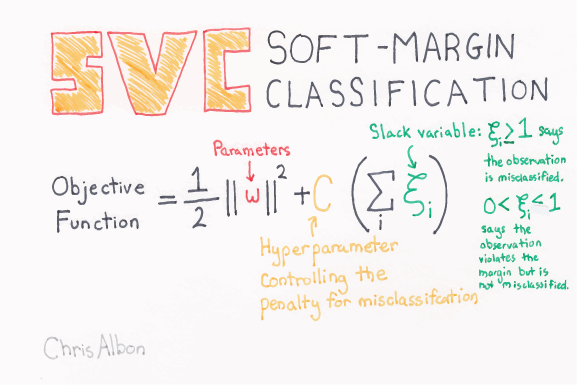 SVC SOFT-MARGIN
CLASSIFICATION
Slack variable: ξᵢ ≥ 1 says
the observation
is misclassified.
0 < ξᵢ < 1
says the
observation
violates the
margin but is
not misclassified.
Parameters
Objective
Function = 1/2 ||w||² + C (∑ᵢ ξᵢ)
Hyperparameter
controlling the
penalty for misclassifcation
Chris Albon